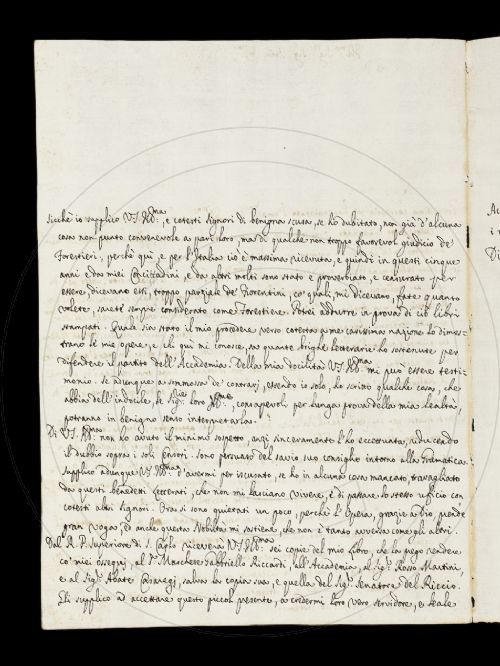 sicchè io supplico V.S. Ill.ma, e cotesti Signori di benigna scusa, se ho dubitato, non già d'alcuna
cosa non punto convenevole a pari loro, ma di qualche non troppo favorevol giudicio de'
Forestieri, perchè qui, e per l'Italia ciò è massima ricevuta, e quindi in questi cinque
anni e da miei Concittadini, e da altri molti sono stato e proverbiato, e censurato per
essere, dicevano essi, troppo parziale de' Fiorentini, co' quali, mi dicevano, fate quanto
volete, sarete sempre considerato come Forestiere. Potrei addurre in prova di ciò libri
stampati. Quale sia stato il mio procedere verso cotesta a me carissima nazione lo dimos-
trano le mie opere, e chi qui mi conosce, sa quante brighe letterarie ho sostenute per
difendere il partito dell'Accademia. Della mia docilità V.S. Ill.ma mi può essere testi-
monio. Se adunque a sommossa de' contrarj, essendo io solo, ho scritto qualche cosa, che
abbia dell'indocile, le Sig.rie loro Ill.me, consapevoli per lunga prova della mia lealtà,
potranno in benigno senso interpretarla.
Di V.S. Ill.ma non ho avuto il minimo sospetto, anzi sinceramente l'ho eccettuata, riducendo
il dubbio sopra i soli Censori. Sono persuaso del savio suo consiglio intorno alla Gramatica.
Supplico adunque V.S. Ill.ma d'avermi per iscusato, se ho in alcuna cosa mancato, travagliato
da questi benedetti letterati, che non mi lasciano vivere, e di passare lo stesso uficio con
cotesti altri Signori. Ora si sono quietati un poco, perchè l'Opera, grazie a Dio, prende
gran voga, ed anche questa Nobiltà mi sostiene, che non è tanto avversa come gli altri.
Dal P. Superiore di S. Carlo riceverà V.S. Ill.ma sei copie del mio libro, che la prego rendere
co' miei ossequj, al S.r Marchese Gabbriello Riccardi, all'Accademia, al Sig.r Rosso Martini,
e al Sig.r Abate salva la copia sua, e quella del Sig.r Senatore del Riccio.
Li supplico ad accettare questo piccol presente, a credermi loro vero servidore, e leale